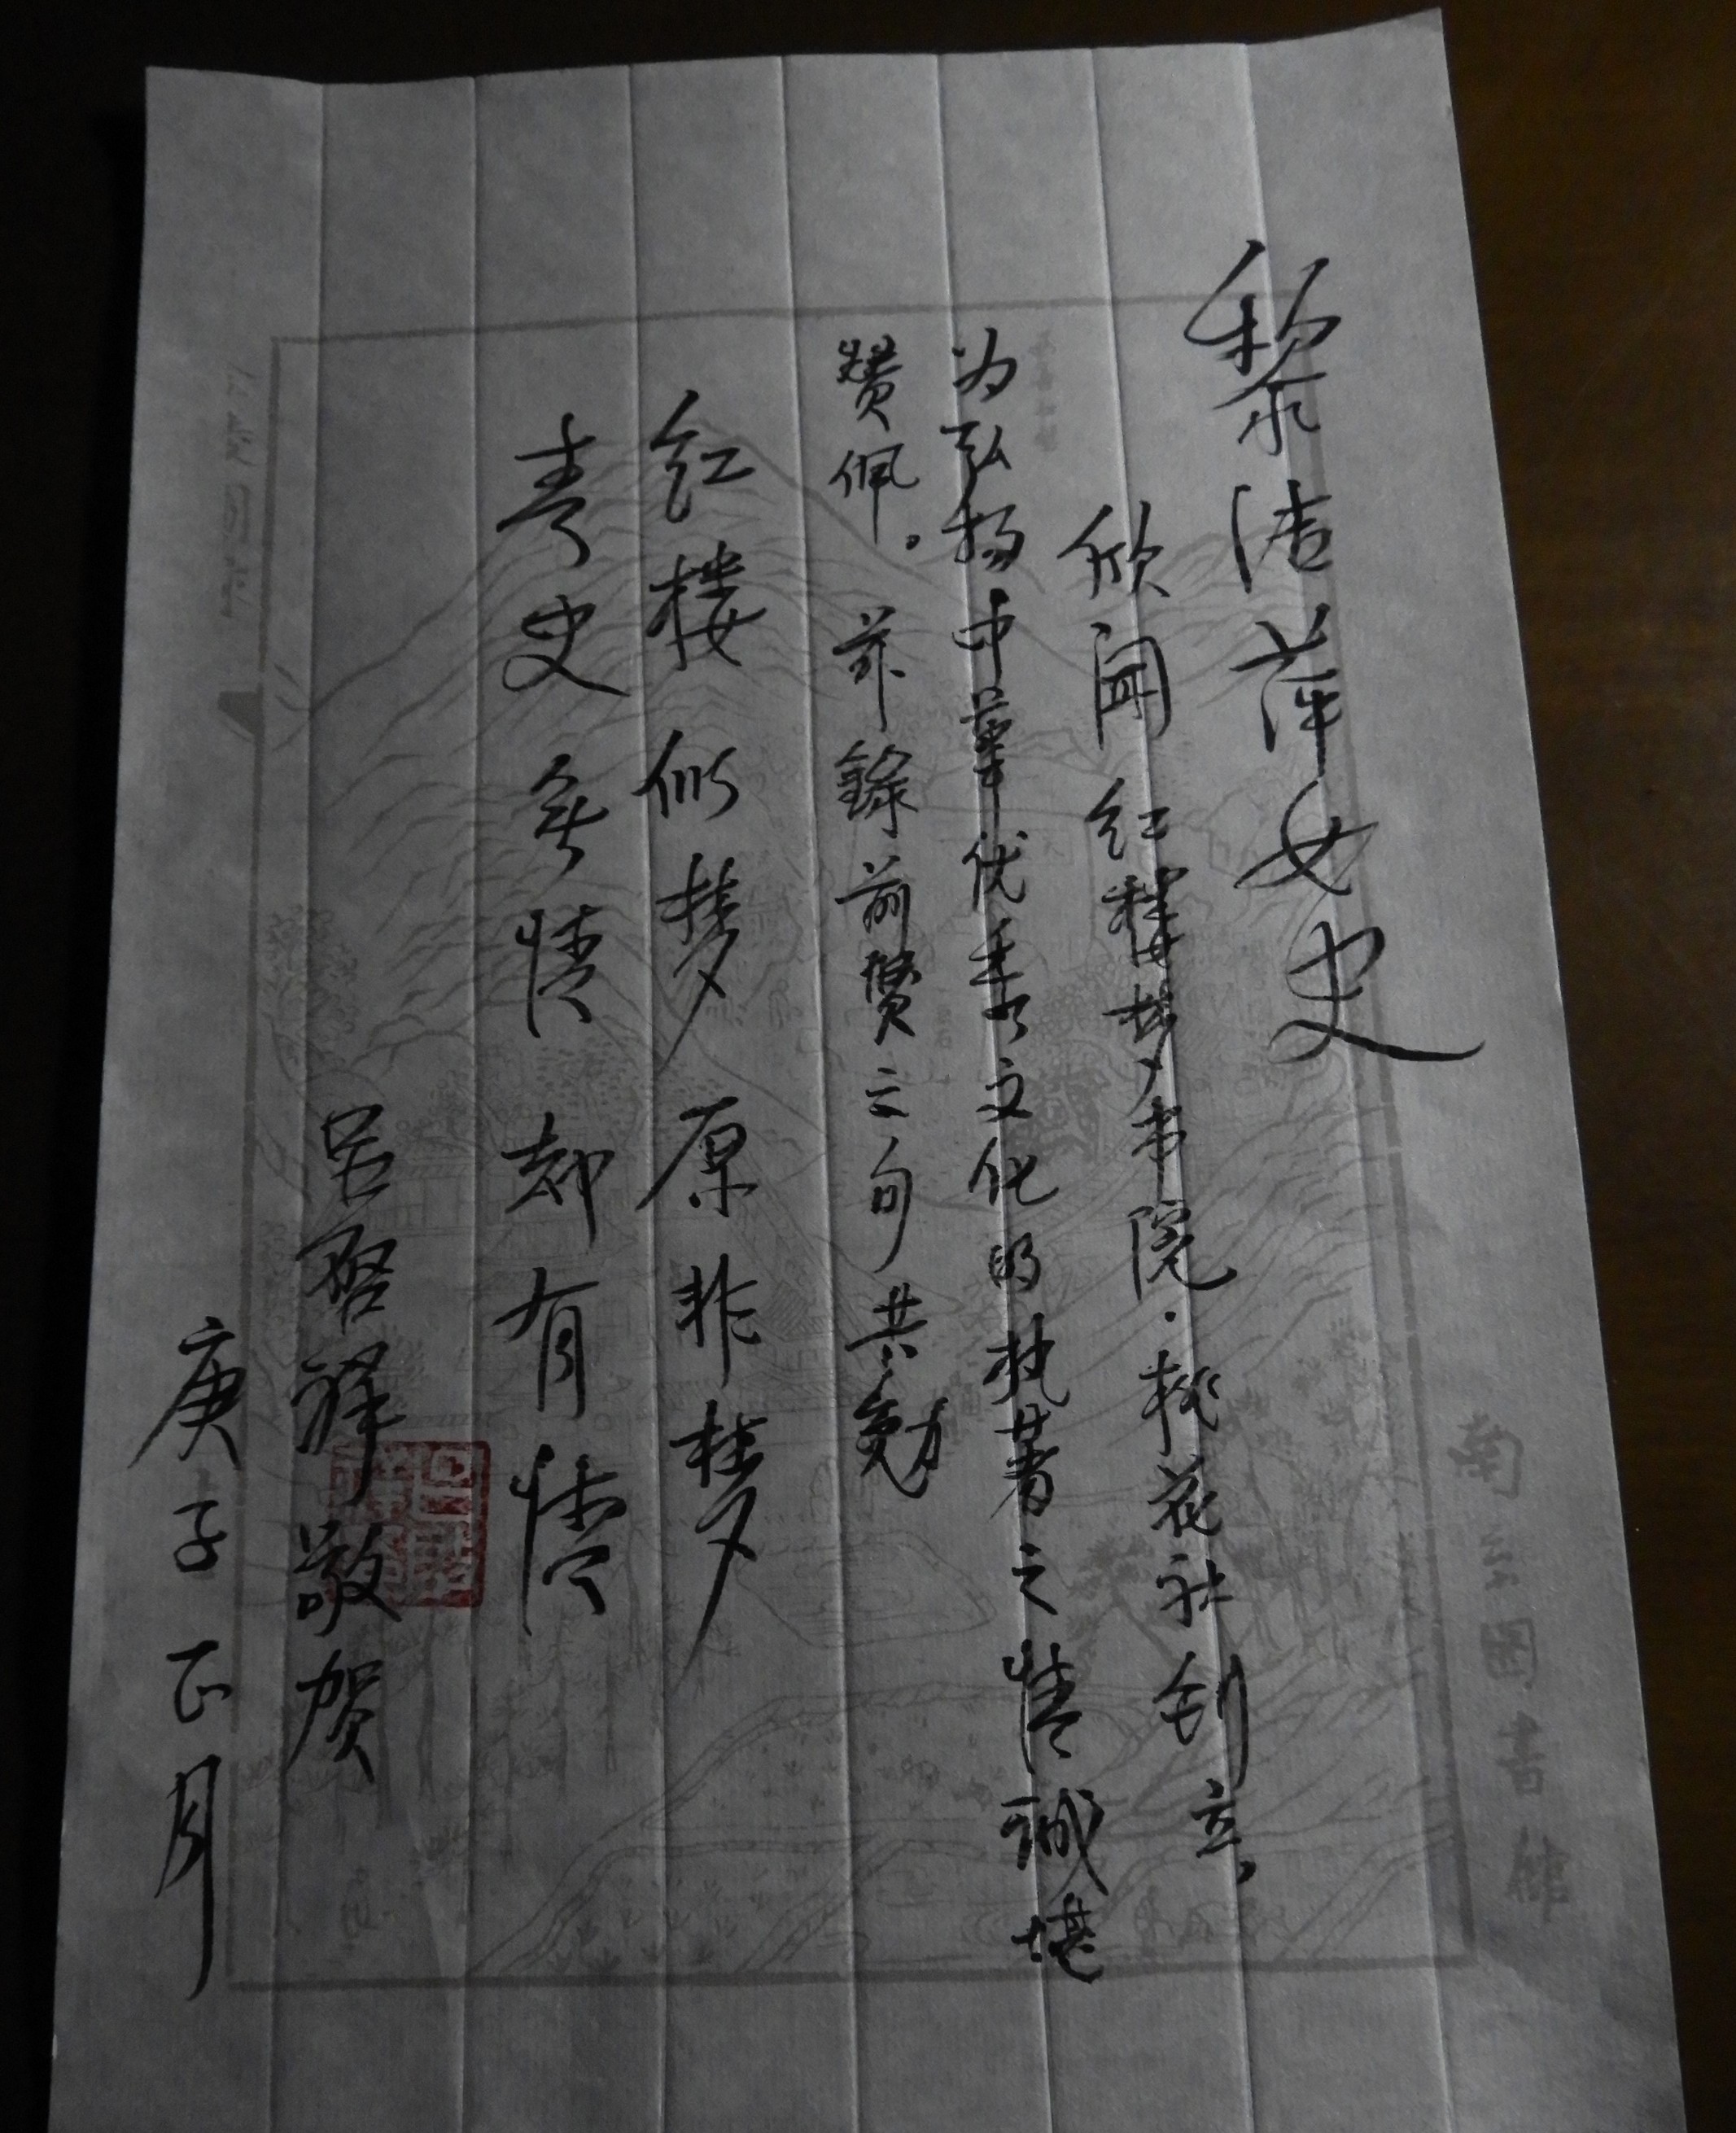 黎洁萍女史
欣闻红楼梦书院·桃花社创立,
为弘扬中华优秀文化的执著之情诚堪
赞佩。兹錄前贤之句共勉
红楼似梦原非梦
青史无情却有情
吕啓祥敬贺
庚子正月
南京图書館